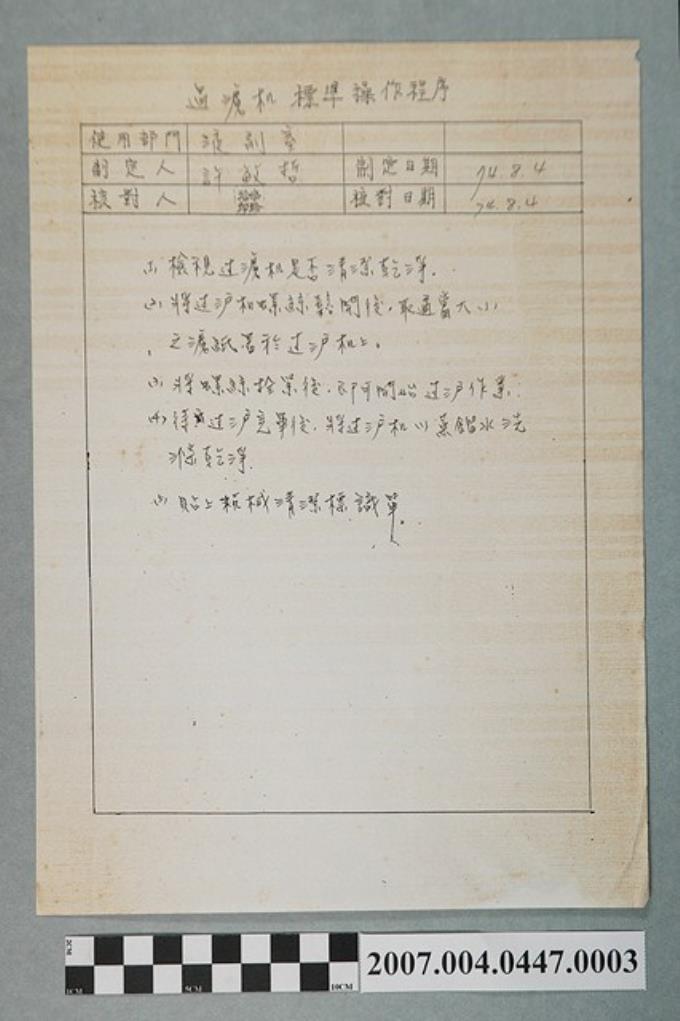 過濾机 標準操作程序
使用部門 液劑室
制定人 許敏哲 制定日期 74.8.4
核對人 核對日期 74.8.4
(1) 檢視过濾机是否清潔乾淨.
(2) 将过沪机螺絲鬆開後,取適當大小
之濾紙置於过沪机上。
(3) 将螺絲拴緊後,即可開始过沪作業.
(4) 待过沪完畢後,将过沪机以蒸餾水洗
滌乾淨.
(5) 貼上機械清潔標識單。
2007.004.0447.0003
1CM 5CM 10CM